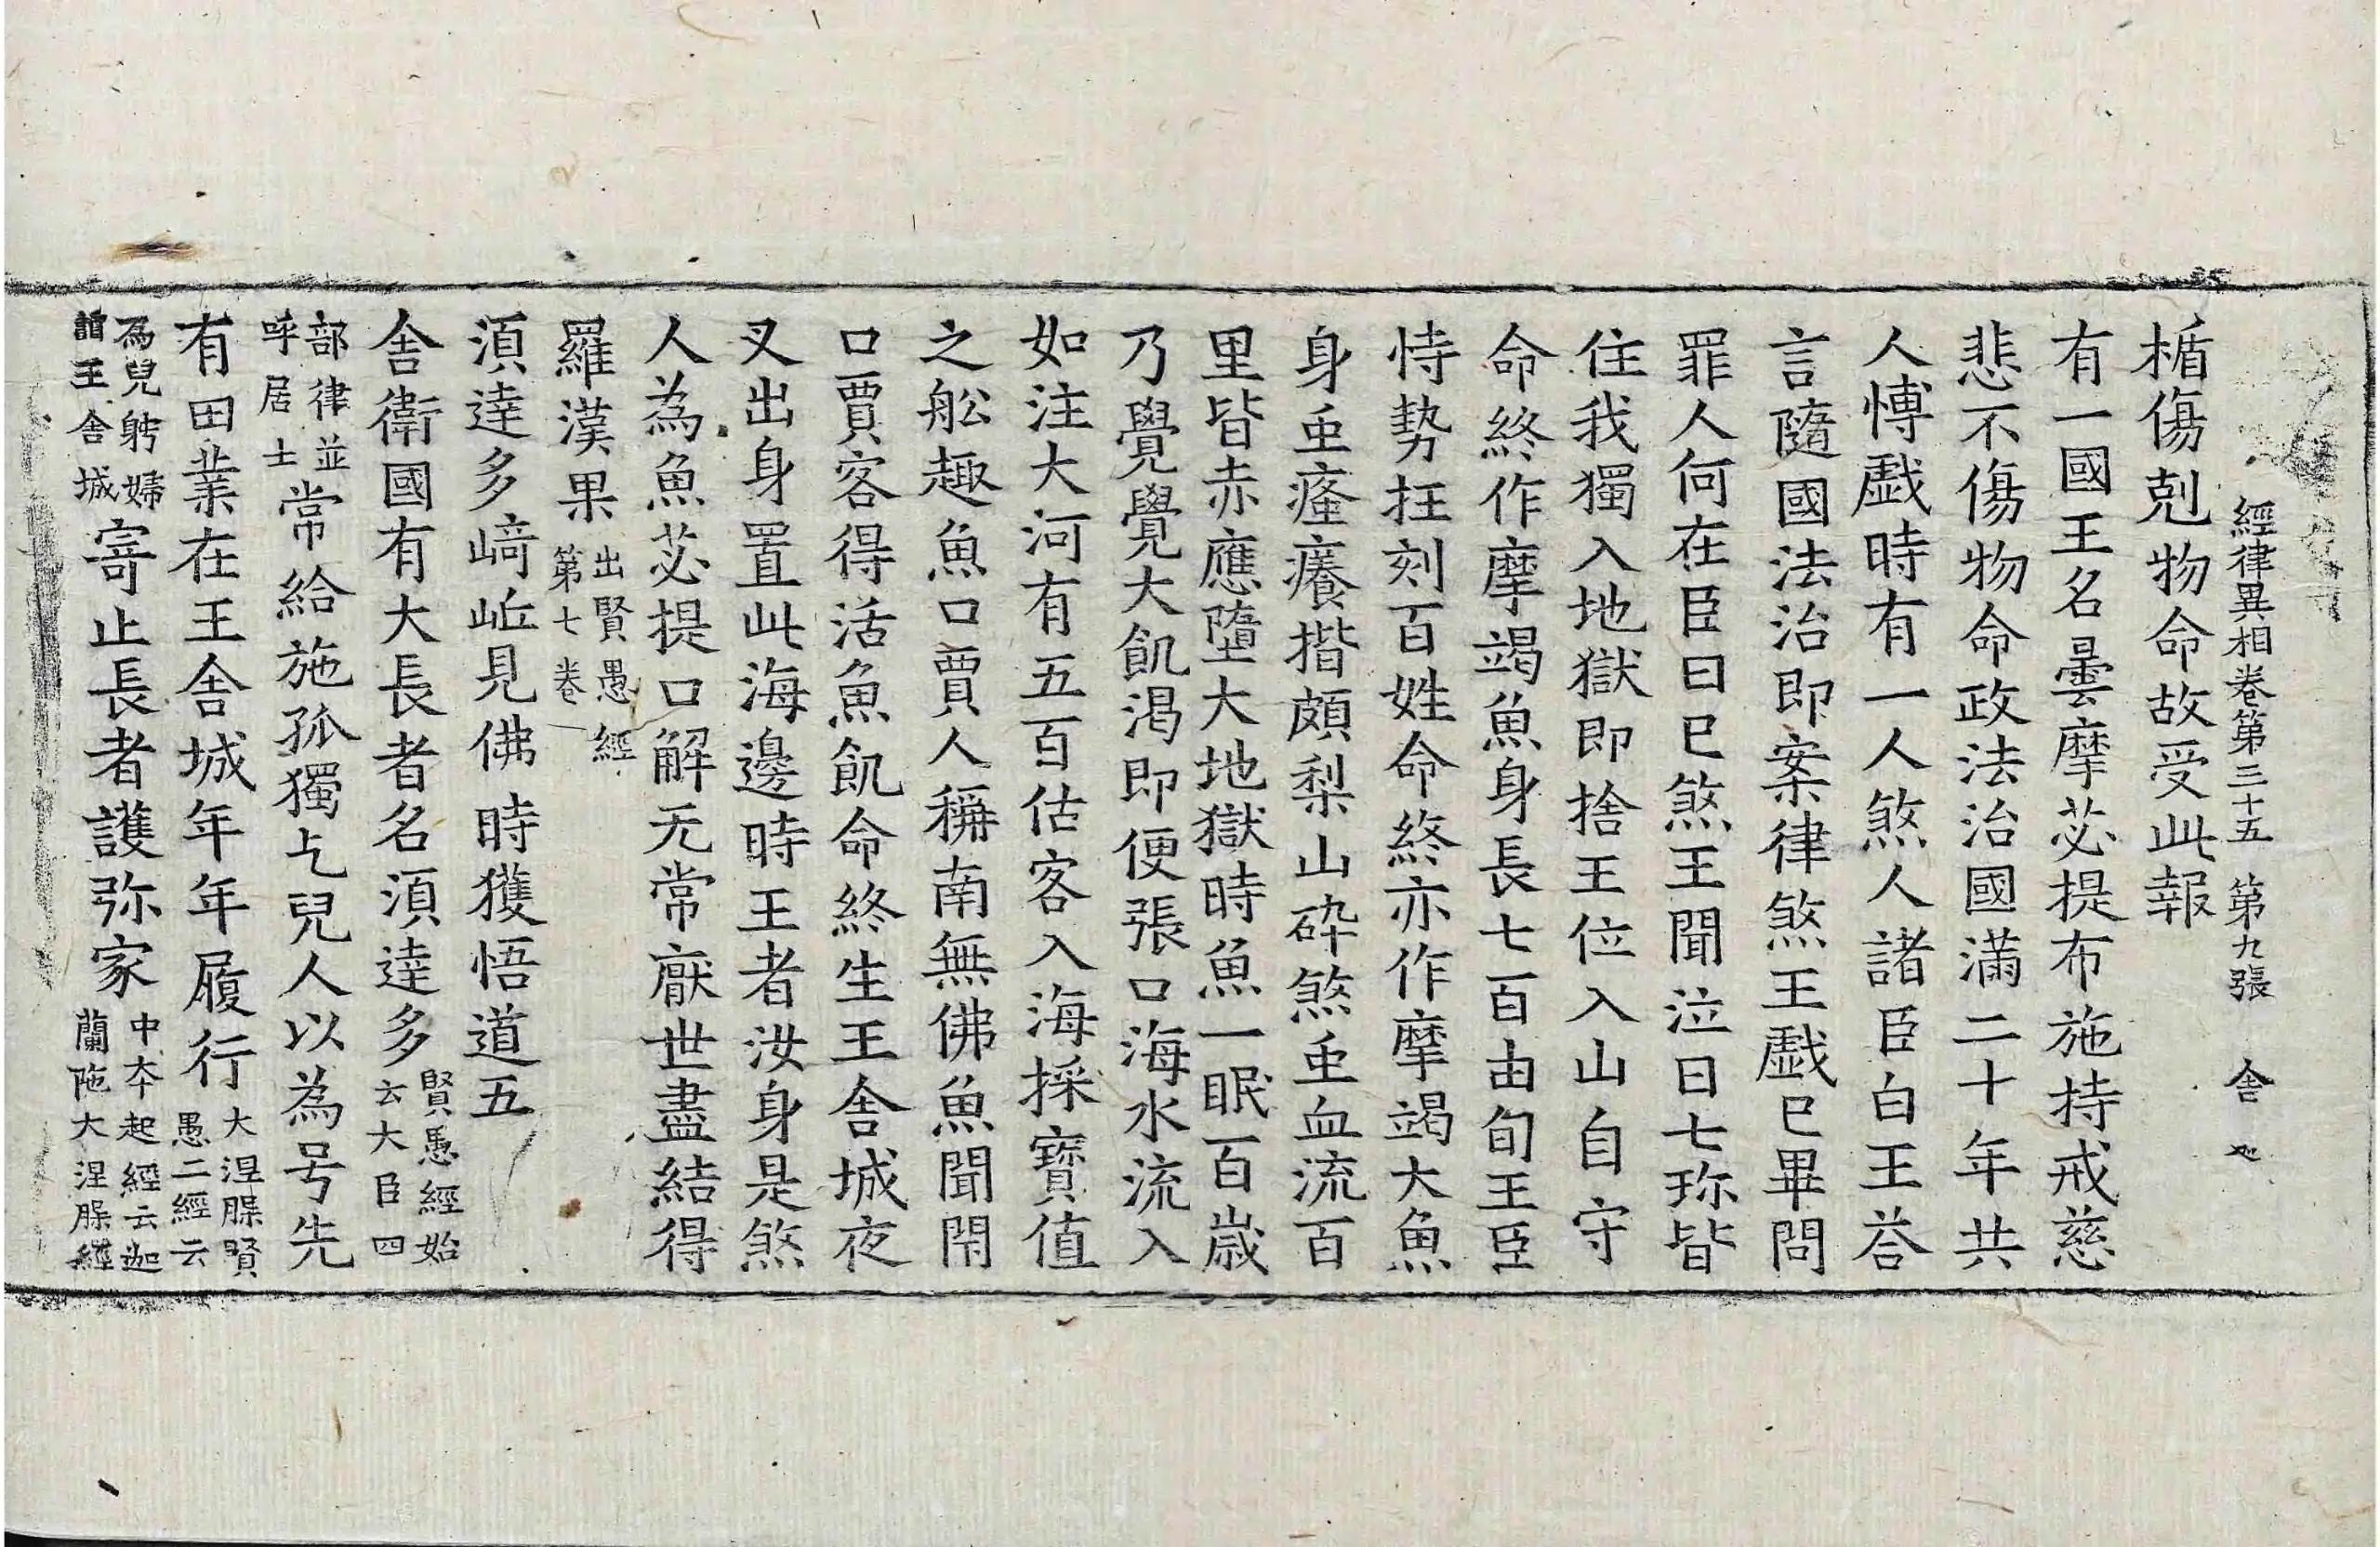 經律異相卷第三十五 第九張 舍
楯傷剋物命故受此報
有一國王名曇摩苾提布施持戒慈
悲不傷物命政法治國滿二十年共
人愽戲時有一人煞人諸臣白王荅
言隨國法治即案律煞王戲已畢問
罪人何在臣曰已煞王聞泣曰七珎皆
住我獨入地獄即捨王位入山自守
命終作摩竭魚身長七百由旬王臣
恃勢抂刻百姓命終亦作摩竭大魚
身䖝瘙癢揩頗梨山碎煞䖝血流百
里皆赤應墮大地獄時魚一眠百歲
乃覺覺大飢渴即便張口海水流入
如注大河有五百估客入海採寶值
之舩趣魚口賈人稱南無佛魚聞閇
口賈客得活魚飢命終生王舍城夜
叉出身置此海邊時王者汝身是煞
人為魚苾提口解无常猒世盡結得
羅漢果出賢愚經第七卷
湏達多崎岴見佛時獲悟道五
舍衛國有大長者名湏達多賢愚經始云大臣四
部律並呼居士常給施孤獨乞兒人以為号先
有田業在王舍城年年履行大涅槃賢愚二經云
為兒娉婦詣王舍城寄止長者護弥家中夲起經云迦蘭陁大涅槃經